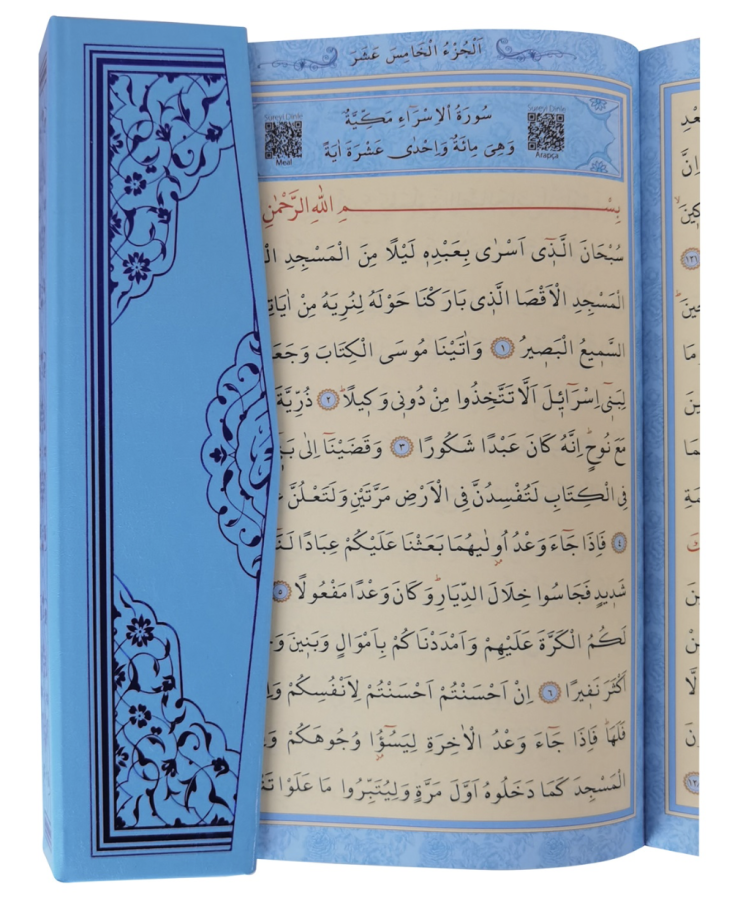 اَلْجُزْءُ الْخَامِسَ عَشَر
سُورَةُ الْاِسْرَٓاءِ مَكِّيَّةٌ
وَهِيَ مِائَةٌ وَاِحْدٰى عَشْرَةَ اٰيَةً
Sureyi Dinle
Arapça
Sureyi Dinle
Meal
بِسْــــــمِ اللّٰهِ الرَّحْمٰنِ
سُبْحَانَ الَّذ۪ٓي اَسْرٰى بِعَبْدِه۪ لَيْلًا مِنَ الْمَسْجِدِ
الْمَسْجِدِ الْاَقْصَا الَّذ۪ي بَارَكْنَا حَوْلَهُ لِنُرِيَهُ مِنْ
السَّم۪يعُ الْبَص۪يرُ ﴿١﴾ وَاٰتَيْنَا مُوسَى الْكِتَابَ
لِبَن۪ٓي اِسْرَٓائ۪لَ اَلَّا تَتَّخِذُوا مِنْ دُون۪ي وَك۪يلًاۜ ﴿٢﴾ ذُرِّيَّةَ
مَعَ نُوحٍۜ اِنَّهُ كَانَ عَبْدًا شَكُورًا ﴿٣﴾ وَقَضَيْنَٓا اِلٰى
فِي الْكِتَابِ لَتُفْسِدُنَّ فِي الْاَرْضِ مَرَّتَيْنِ وَلَتَعْلُنَّ
﴿٤﴾ فَاِذَا جَٓاءَ وَعْدُ اُو۫لٰيهُمَا بَعَثْنَا عَلَيْكُمْ عِبَادًا
شَد۪يدٍ فَجَاسُوا خِلَالَ الدِّيَارِۜ وَكَانَ وَعْدًا مَفْعُولًا ﴿٥﴾
لَكُمُ الْكَرَّةَ عَلَيْهِمْ وَاَمْدَدْنَاكُمْ بِاَمْوَالٍ وَبَن۪ينَ
اَكْثَرَ نَف۪يرًا ﴿٦﴾ اِنْ اَحْسَنْتُمْ اَحْسَنْتُمْ لِاَنْفُسِكُمْ
فَلَهَاۜ فَاِذَا جَٓاءَ وَعْدُ الْاٰخِرَةِ لِيَسُٓوؤُ۫ا وُجُوهَكُمْ
الْمَسْجِدَ كَمَا دَخَلُوهُ اَوَّلَ مَرَّةٍ وَلِيُتَبِّرُوا مَا عَلَوْا